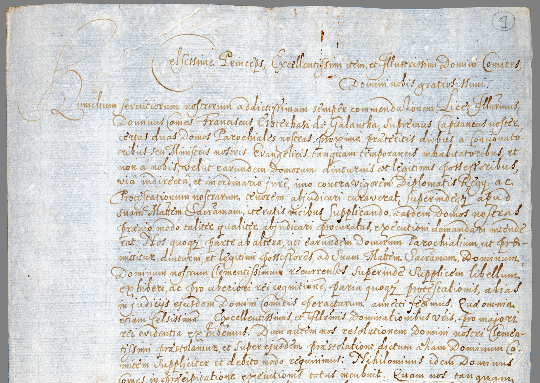 9
Celsissime Princeps, Excellentissimi item, et Illustrissimi Domini Comites,
Domini nobis gratiosissimi.
Humilium servitiorum nostrorum addictissimam semper commendationem. Licet Illustrissimus
Dominus Comes Franciscus Eszterhasi de Galantha, Supremus Capitaneus noster
certas duas Domos Parochiales nostras, proxime praeteritis diebus a Concionato
ribus seu Ministris nostris Evangelicis tanquam temporaneis inhabitatoribus, et
non a nobis, velut earundem Domorum diuturnis et legitimis possessoribus,
via indirecta, et inordinario jure, imo contra vigorem Diplomatis Regii, ac
Protestationum nostrarum tenorem abjudicari curaverat Superindeq apud
suam Mattem Sacramam, iteratis vicibus Supplicando, easdem Domos nostras
praevio modo taliter qualiter abjudicari procuratas, executioni demandari intende
rat. Nos quoq parte ab altera, uti earundem Domorum Parochialium ut prae
missum diuturni et legitimi possessores ad Suam Mattem Sacramam, Dominum
Dominum nostrum Clementissimum recurrentes Superinde Supplicem libellum
exhiberi, ac pro uberiori rei cognitione, paria quoq protestationis, ab has
in judiciis ejusdem Domini Comitis peractarum, annecti fecimus. Quo omnia
etiam Celsissimae Excellentissimis, et Illustrissimis Dominationibus Vris, pro majore
rei evidentia exhibemus. Dum autem nos resolutionem Domini nostri Clemen
tissimi praestolamur, et super ejusdem praestolatione dictum etiam Dominum Co
mitem Suppliciter et debito modo requirimus: Nihilominus idem Dominus
Comes in praecipitatione executionis totus incubuit. Quam nos tanquam